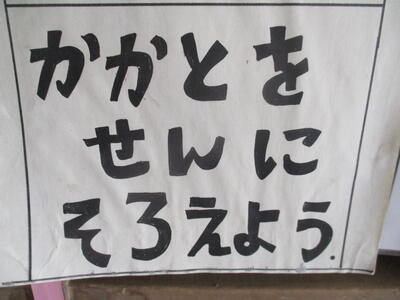 かかとを
せんに
そろえよう.